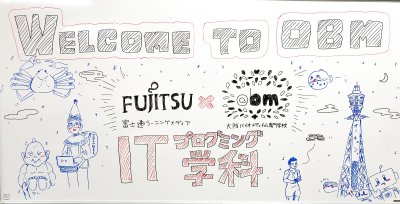 WELCOME TO OBM
FUJITSU × OBM
富士通ラーニングメディア 大阪バイオメディカル専門学校
ITプログラミング
学科